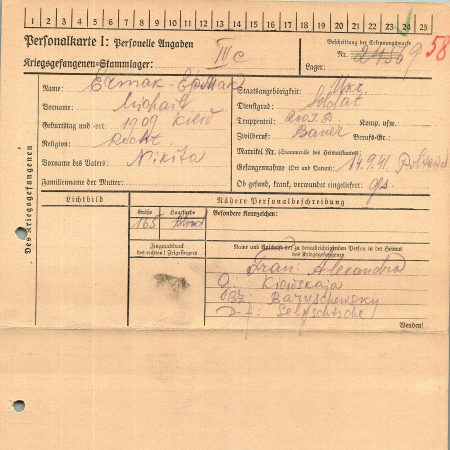 1 2 3 4 5 6 7 8 9 10 11 12 13 14 15 16 17 18 19 20 21 22 23 24 25
Personalkarte I: Personelle Angaben
Kriegsgefangenen-Stammlager: III c
Beschriftung der Erkennungsmarke
Nr. 58
Lager:
Des Kriegsgefangenen
Name: Ermak - Ермак
Vorname: Michail
Geburtstag und -ort: 1909 Kiew
Religion:
Vorname des Vaters: Nikita
Familienname der Mutter:
Staatsangehörigkeit: Ukr.
Dienstgrad: Soldat
Truppenteil: Komp. usw.
Zivilberuf: Bauer Berufs-Gr.:
Matrikel Nr. (Stammrolle des Heimatstaates):
Gefangennahme (Ort und Datum): 14.9.41 Poltawa
Ob gesund, krank, verwundet eingeliefert: ges.
Lichtbild
Nähere Personalbeschreibung
Größe Haarfarbe Besondere Kennzeichen:
165 blond
Fingerabdruck
des rechten! Zeigefingers
Name und Anschrift der zu benachrichtigenden Person in der Heimat
des Kriegsgefangenen
Frau: Alexandra
G: Kiewskaja
Bz: Baryschewsky
D-f: Selyschtsche
Wenden!